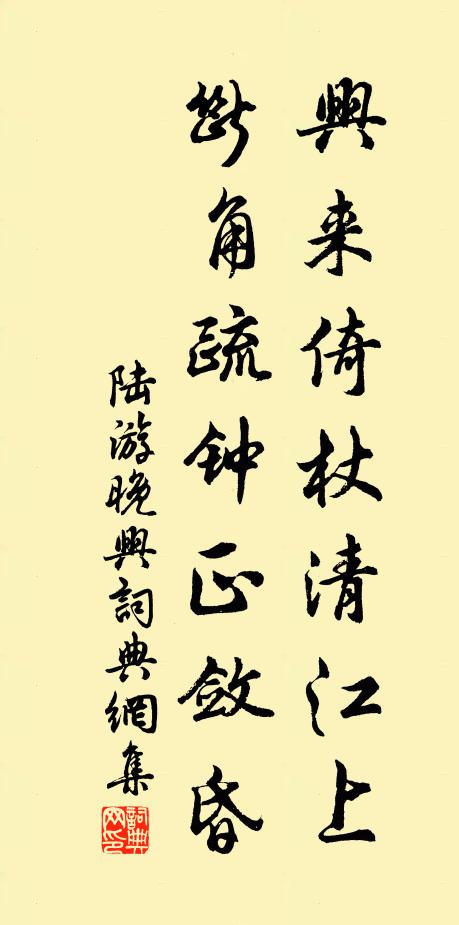 興来倚杖清江上
断角疏钟正斂昏
陆游晚興詞典網集
詞典网印